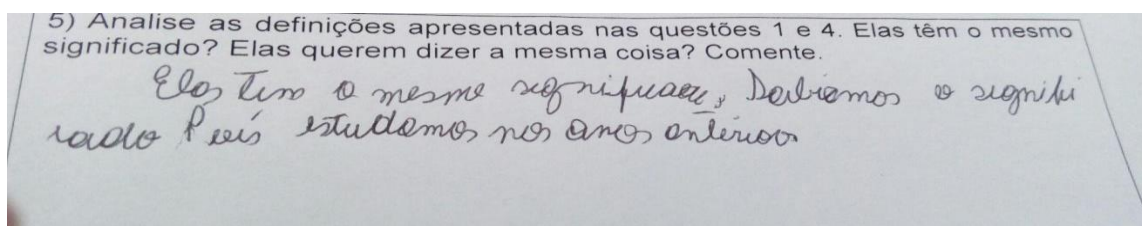 5) Analise as definições apresentadas nas questões 1 e 4. Elas têm o mesmo
significado? Elas querem dizer a mesma coisa? Comente.
Elas Tem o mesmo significado, Sabiamos o signifi
cado Pois estudamos nos anos anterior